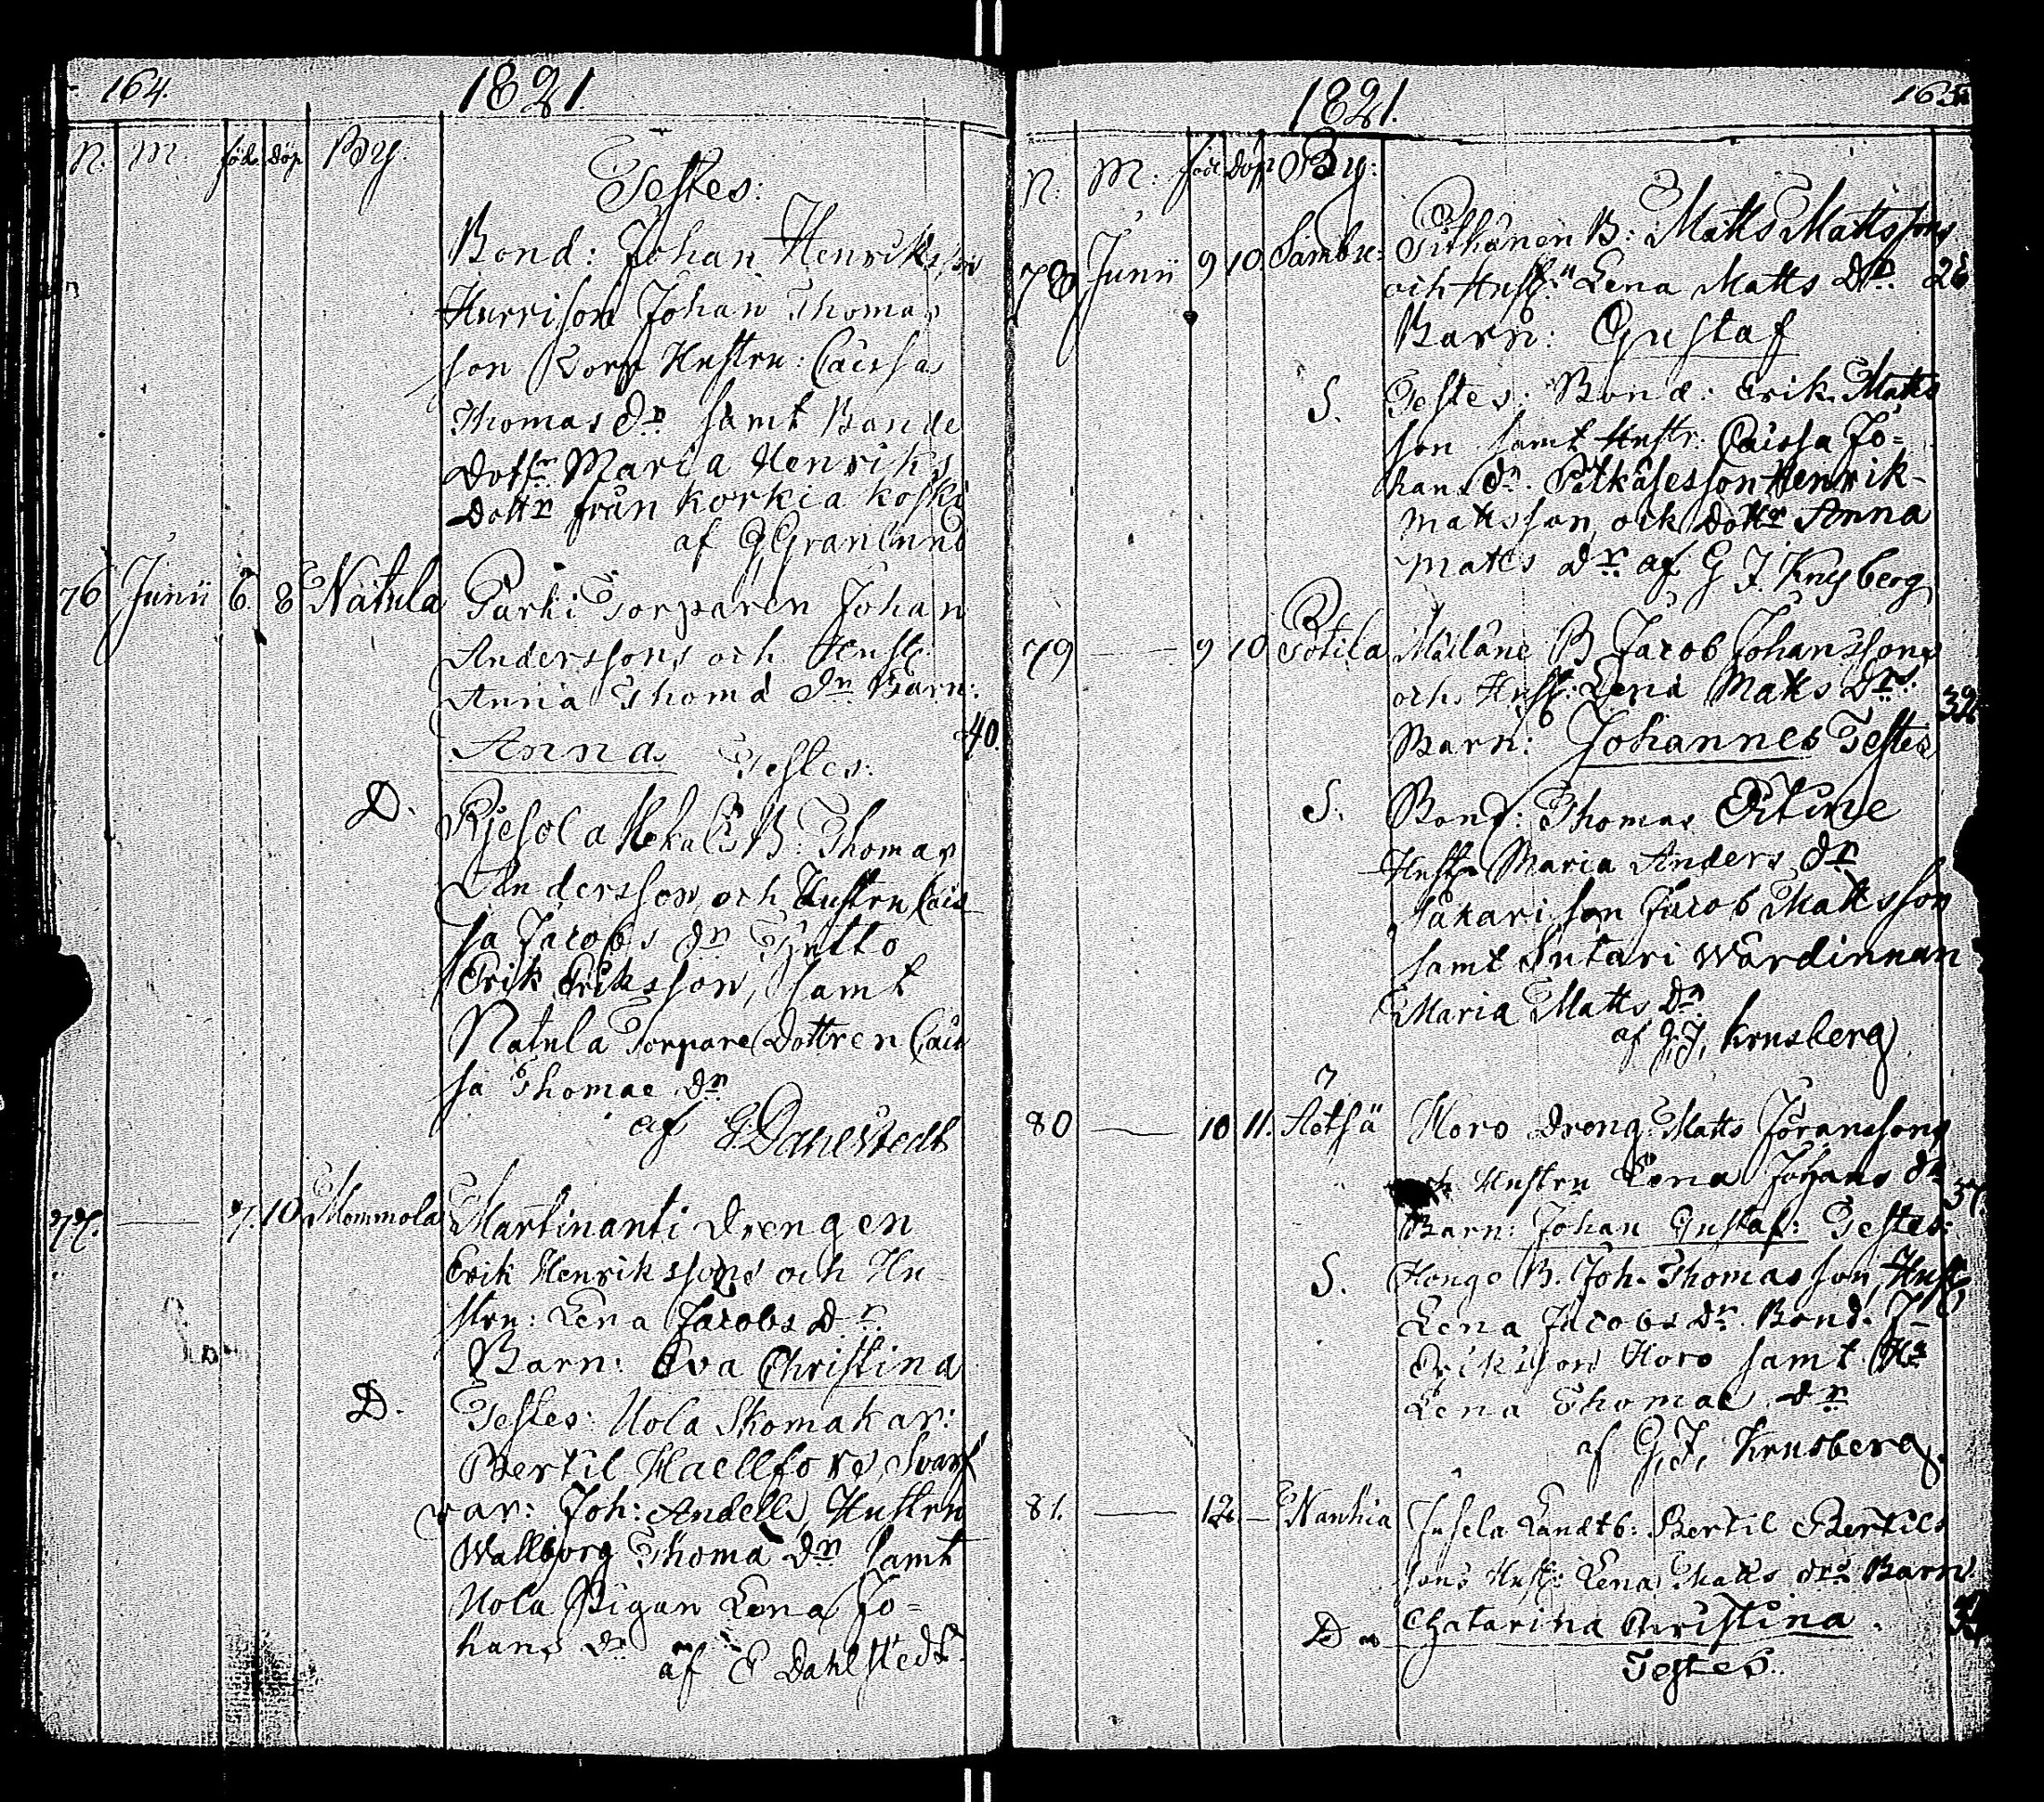 164. 1821.
N. M. föd. döp. By.
Testes:
Bond: Johan Henriksson
Hurri son Johan Thomas
son Torp Hustru: Caissa
Thomas Dr. samt Bonde
Dottr. Maria Henriks
Dottr från Korkia koski
af G Granlund
76 Junii 6. 8 Nätula Parki Torparen Johan
Anderssons och Hust:
Anna Thomæ Dr. Barn:
Anna Testes: 40.
D. Rjesola B. Thomas
Andersson och Hustru Cais
sa Jacobs Dr. Hutto
Erik Eriksson, samt
Natula Torpare Dottren Cais
sa Thomae Dr.
af E Dahlstedt
77. — 7. 10 Mommola Martinanti Drengen
Erik Henrikssons och Hu
stru: Lena Jacobs Dr.
Barn: Eva Christina
D. Testes: Uola Skomakar:
Bertil Haellfors, Svarf
var: Joh: Andell, Hustru
Wallborg Thoma Dr. samt
Uola Pigan Lena Jo=
hans Dr. af E Dahlstedt.
1821. 165
N. M. föd. Döp By:
78 Junii 9 10. Sambu: Pithänen B: Matts Mattssons
och Hust: Lena Matts Dr. 28
Barn: Gustaf
S. Testes: Bond: Erik Matts
son samt Hustr. Caissa Jo=
hans Dr. Henrik
Mattsson och Dottr Anna
Matts Dr. af G J. Krysberg
79 — 9 10 Potila B Jacob Johanssons
och Hust: Lena Matts Drs. 32
Barn: Johannes Testes
S. Bond: Thomas
Hust: Maria Anders Dr
son Jacob Mattsson
samt Suntari Wärdinnan
Maria Matts Dr.
af G.J. Krusberg
80 — 10 11. Horo Dreng: Matts Joranssons
och Hustru Lena Johans dr 37.
Barn: Johan Gustaf: Testes:
S. Hongo B. Joh. Thomasson, Hust:
Lena Jacobs Dr. Bond. J=
Eriksson Horo samt Hu
Lena Thomae. Dr
af G.J. Krusberg.
81. — 12 — Nanhia Landtb: Bertil Bertils
sons Hust: Lena Matts drs Barn
D. Chatarina Christina.
Testes.